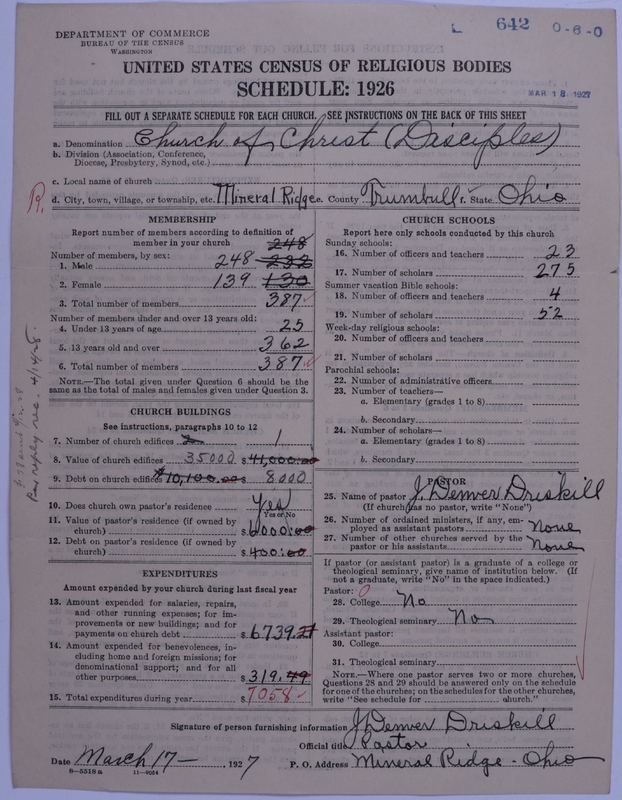 642 0-6-0
DEPARTMENT OF COMMERCE
BUREAU OF THE CENSUS
WASHINGTON
UNITED STATES CENSUS OF RELIGIOUS BODIES
SCHEDULE: 1926
MAR 18 1927
FILL OUT A SEPARATE SCHEDULE FOR EACH CHURCH. SEE INSTRUCTIONS ON THE BACK OF THIS SHEET
a. Denomination Church of Christ (Disciples)
b. Division (Association, Conference,
Diocese, Presbytery, Synod, etc.)
c. Local name of church
d. City, town, village, or township, etc. Mineral Ridge e. County Trumbull f. State Ohio
MEMBERSHIP
Report number of members according to definition of
member in your church 248
Number of members, by sex:
1. Male 248 232
2. Female 139 130
3. Total number of members 387
Number of members under and over 13 years old:
4. Under 13 years of age 25
5. 13 years old and over 362
6. Total number of members 387
NOTE.—The total given under Question 6 should be the
same as the total of males and females given under Question 3.
CHURCH BUILDINGS
See instructions, paragraphs 10 to 12
7. Number of church edifices 2 1
8. Value of church edifices 35000 $41,000.00
9. Debt on church edifices $10,100.00 8000
10. Does church own pastor's residence Yes
Yes or No
11. Value of pastor's residence (if owned by
church) $6000.00
12. Debt on pastor's residence (if owned by
church) $400.00
EXPENDITURES
Amount expended by your church during last fiscal year
13. Amount expended for salaries, repairs,
and other running expenses; for im-
provements or new buildings; and for
payments on church debt $6739.21
14. Amount expended for benevolences, in-
cluding home and foreign missions; for
denominational support; and for all
other purposes $319.49
15. Total expenditures during year $7058
CHURCH SCHOOLS
Report here only schools conducted by this church
Sunday schools:
16. Number of officers and teachers 23
17. Number of scholars 275
Summer vacation Bible schools:
18. Number of officers and teachers 4
19. Number of scholars 52
Week-day religious schools:
20. Number of officers and teachers
21. Number of scholars
Parochial schools:
22. Number of administrative officers
23. Number of teachers—
a. Elementary (grades 1 to 8)
b. Secondary
24. Number of scholars—
a. Elementary (grades 1 to 8)
b. Secondary
PASTOR
25. Name of pastor J. Denver Driskill
(If church has no pastor, write "None")
26. Number of ordained ministers, if any, em-
ployed as assistant pastors None
27. Number of other churches served by the
pastor or his assistants None
If pastor (or assistant pastor) is a graduate of a college or
theological seminary, give name of institution below. (If
not a graduate, write "No" in the space indicated.)
Pastor: 0
28. College No
29. Theological seminary No
Assistant pastor:
30. College
31. Theological seminary
NOTE.—Where one pastor serves two or more churches,
Questions 28 and 29 should be answered only on the schedule
for one of the churches; on the schedules for the other churches,
write "See schedule for church."
Signature of person furnishing information J. Denver Driskill
Official title Pastor
Date March 17 — , 1927 P. O. Address Mineral Ridge - Ohio
8—5518 a 11—9054
R.
reply rec. 4/14/28.